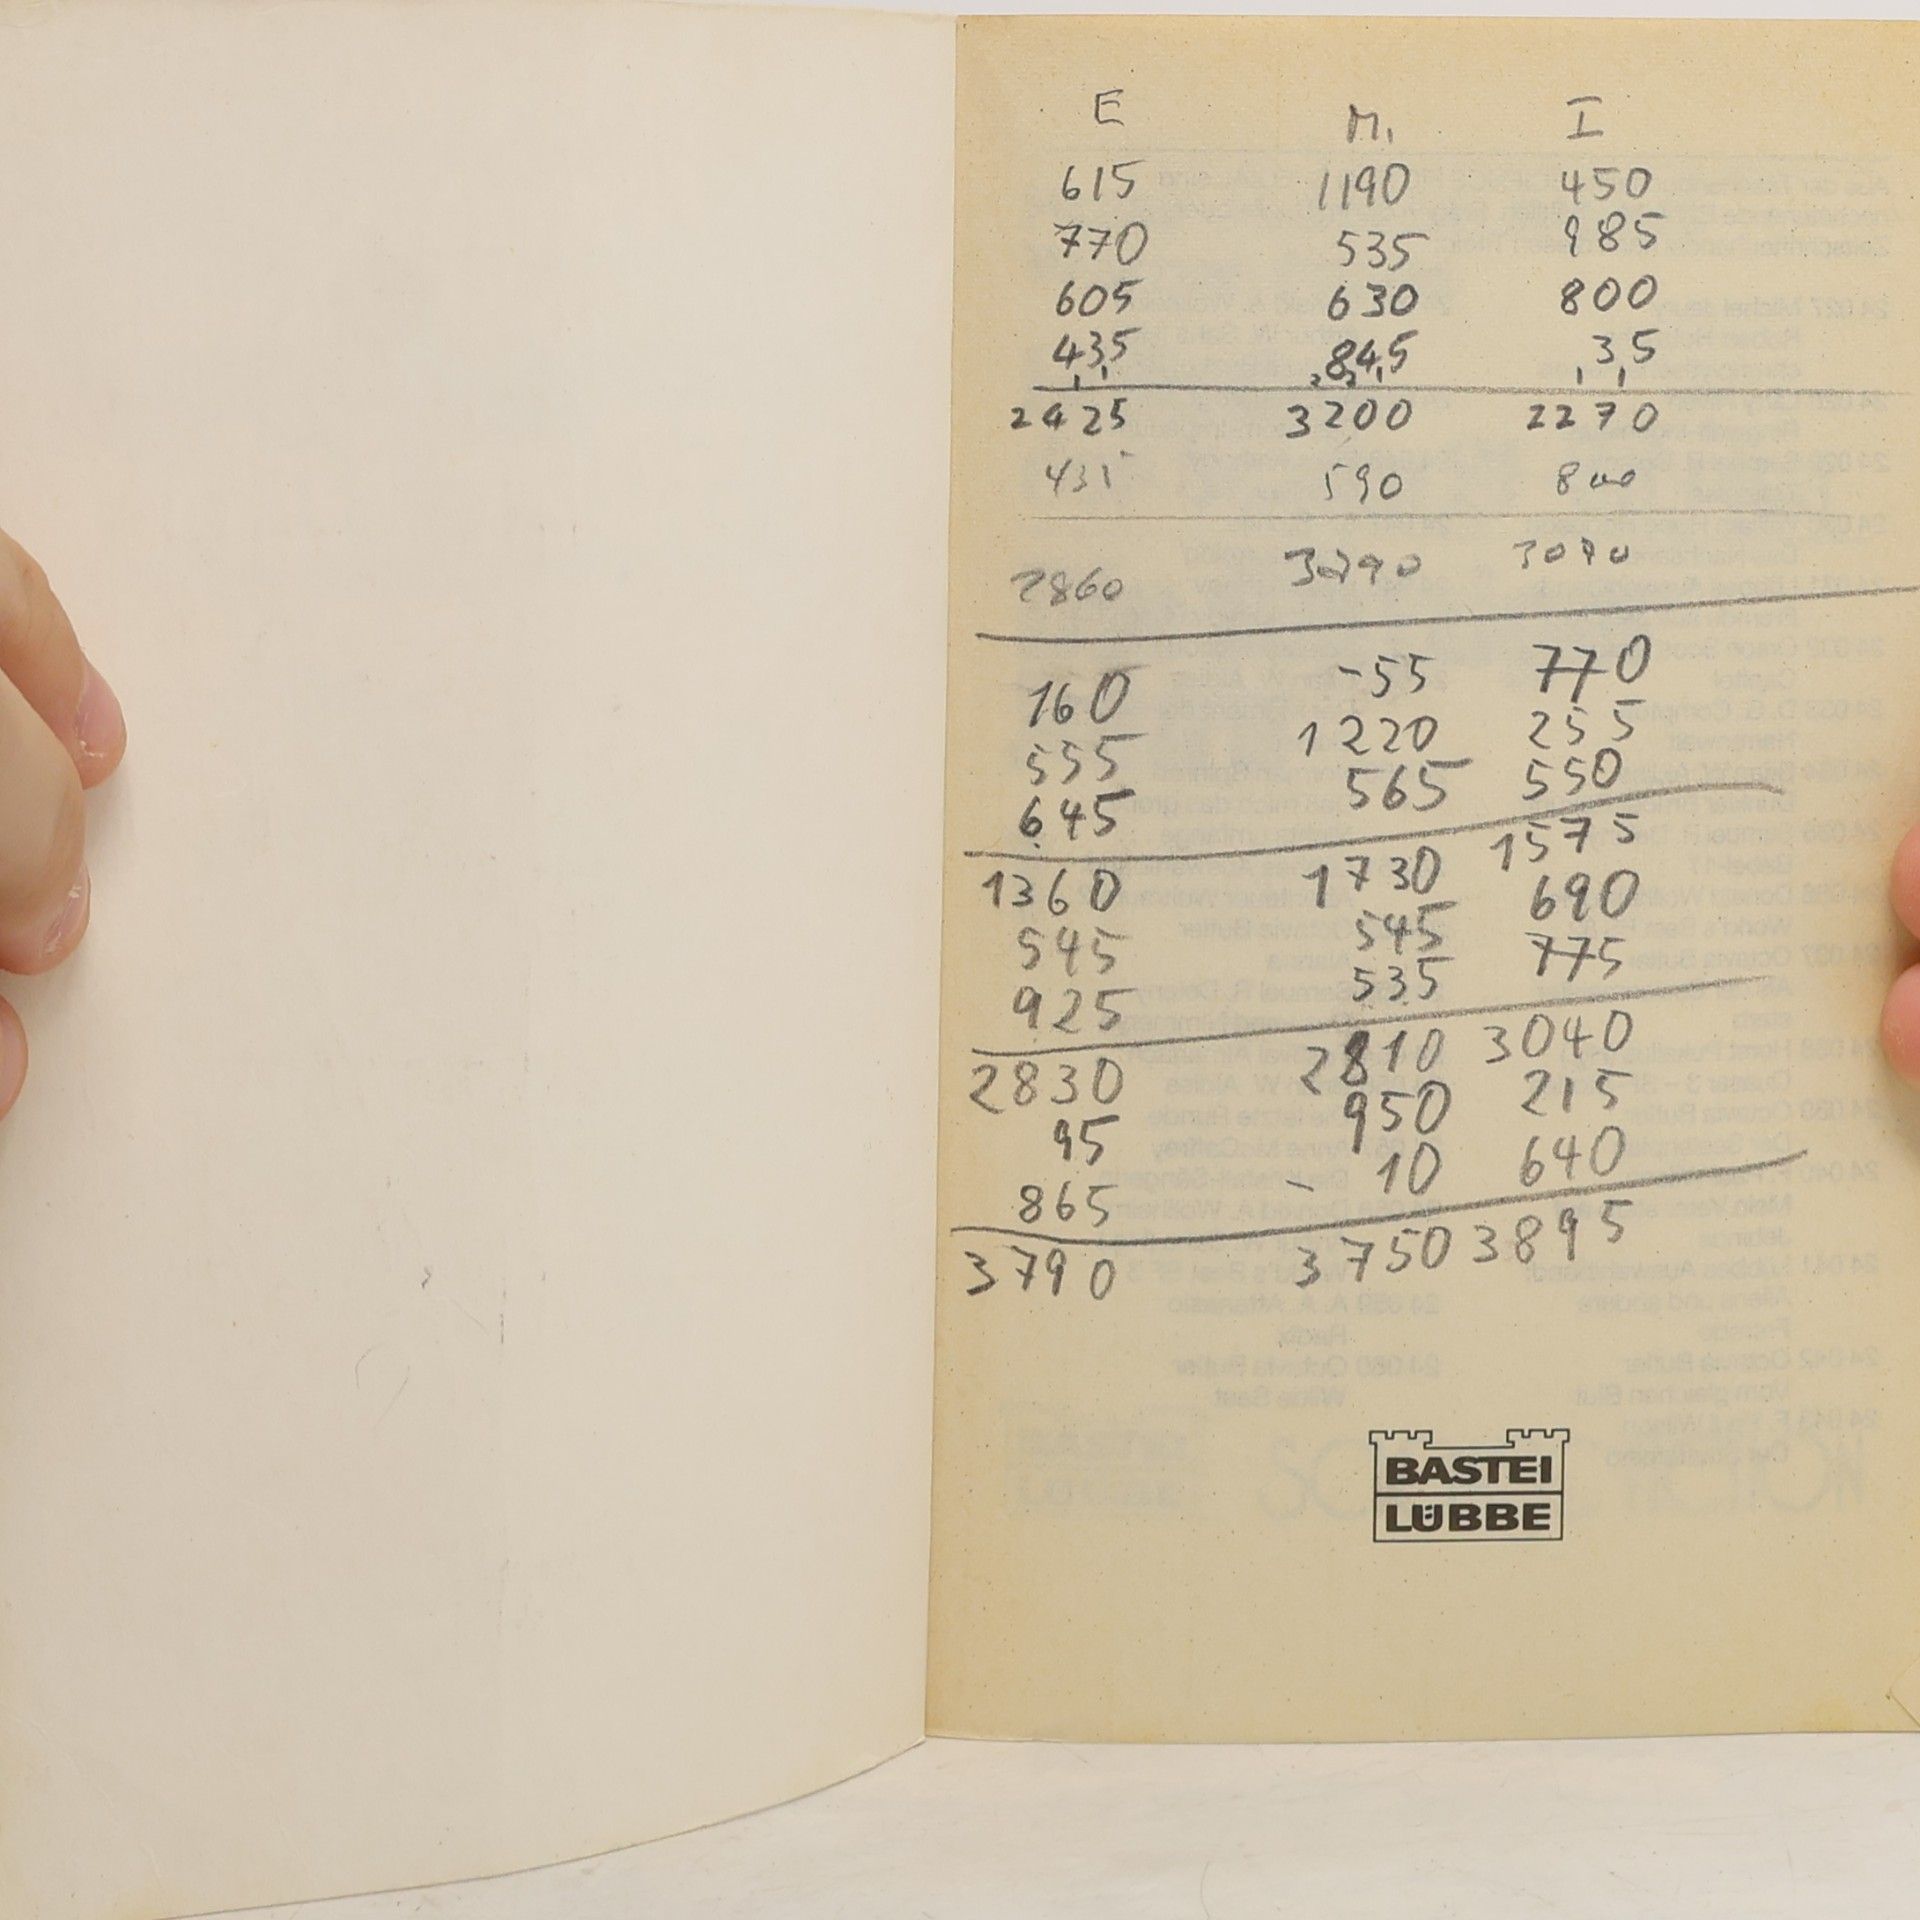 E M. I
615 1190 450
770 535 985
605 630 800
435 845 35
2425 3200 2270
435 590 800
2860 3790 3070
160 -55 770
555 1220 255
645 565 550
1360 1730 1575
545 545 690
925 535 775
2830 2810 3040
95 950 215
865 - 10 640
3790 3750 3895
BASTEI
LÜBBE